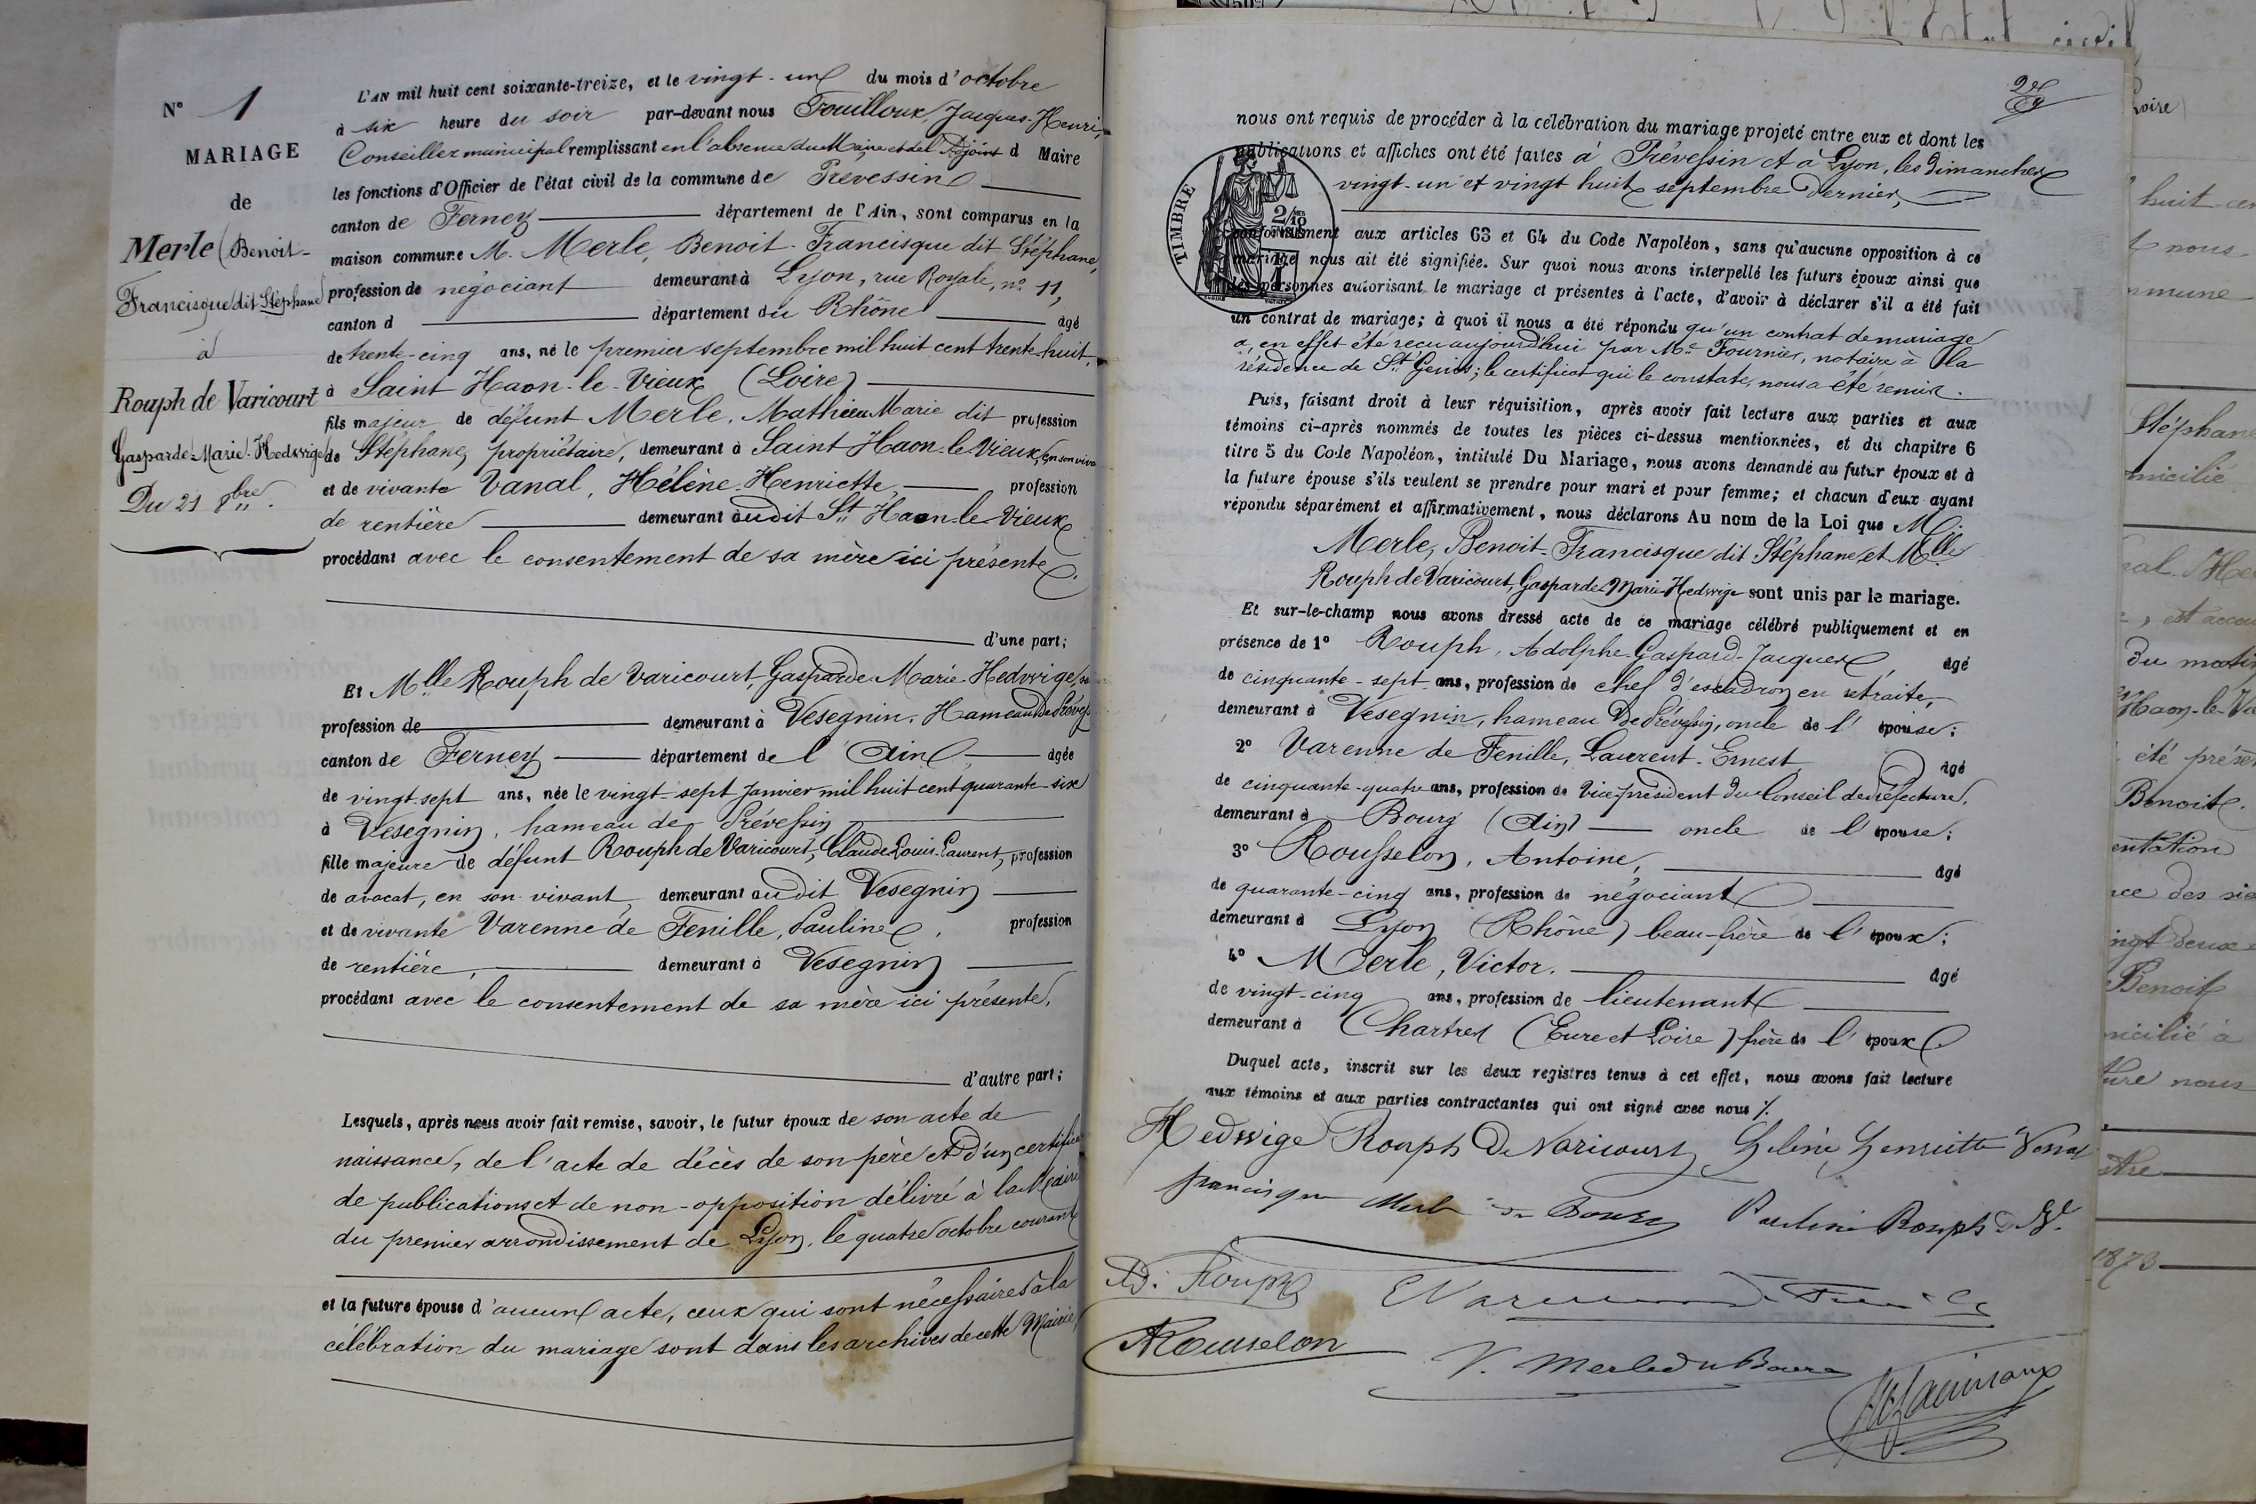 N° 1
MARIAGE
de
Merle (Benoit-
Francisque dit Stéphane)
à
Rouph de Varicourt
Gasparde-Marie-Hedwige
Du 21 8bre.
L'AN mil huit cent soixante-treize, et le vingt-un du mois d'octobre
à six heure du soir par-devant nous Fouilloux, Jacques-Henri,
Conseiller municipal remplissant en l'absence du Maire et de l'Adjoint d Maire
les fonctions d'Officier de l'état civil de la commune de Prévessin
canton de Ferney département de l'Ain, sont comparus en la
maison commune M. Merle, Benoit-Francisque dit Stéphane,
profession de négociant demeurant à Lyon, rue Royale, n° 11,
canton d département du Rhône âgé
de trente-cinq ans, né le premier septembre mil huit cent trente-huit,
à Saint Haon-le-Vieux (Loire)
fils majeur de défunt Merle, Mathieu Marie dit profession
de Stéphane, propriétaire, demeurant à Saint Haon-le-Vieux, en son viva
et de vivante Vanal, Hélène-Henriette, profession
de rentière demeurant audit St Haon-le-Vieux
procédant avec le consentement de sa mère ici présente.
d'une part;
Et Mlle Rouph de Varicourt, Gasparde-Marie-Hedwige,
profession de demeurant à Vesegnin, Hameau de Prévess
canton de Ferney département de l'Ain, âgée
de vingt-sept ans, née le vingt-sept janvier mil huit cent quarante-six
à Vesegnin, hameau de Prévessin
fille majeure de défunt Rouph de Varicourt, Claude-Louis-Laurent, profession
de avocat, en son vivant, demeurant audit Vesegnin
et de vivante Varenne de Fenille, Pauline, profession
de rentière, demeurant à Vesegnin
procédant avec le consentement de sa mère ici présente,
d'autre part;
Lesquels, après nous avoir fait remise, savoir, le futur époux de son acte de
naissance, de l'acte de décès de son père et d'un certifica
de publications et de non-opposition délivré à la Mairie
du premier arrondissement de Lyon, le quatre octobre courant
et la future épouse d'aucun acte, ceux qui sont nécessaires à la
célébration du mariage sont dans les archives de cette Mairie,
nous ont requis de procéder à la célébration du mariage projeté entre eux et dont les
publications et affiches ont été faites à Prévessin et à Lyon, les dimanches
vingt-un et vingt huit septembre dernier,
TIMBRE
conformément aux articles 63 et 64 du Code Napoléon, sans qu'aucune opposition à ce
mariage nous ait été signifiée. Sur quoi nous avons interpellé les futurs époux ainsi que
les personnes autorisant le mariage et présentes à l'acte, d'avoir à déclarer s'il a été fait
un contrat de mariage; à quoi il nous a été répondu qu'un contrat de mariage
a, en effet été reçu aujourd'hui par Me Fournier, notaire à la
résidence de St Genis; le certificat qui le constate, nous a été remis.
Puis, faisant droit à leur réquisition, après avoir fait lecture aux parties et aux
témoins ci-après nommés de toutes les pièces ci-dessus mentionnées, et du chapitre 6
titre 5 du Code Napoléon, intitulé Du Mariage, nous avons demandé au futur époux et à
la future épouse s'ils veulent se prendre pour mari et pour femme; et chacun d'eux ayant
répondu séparément et affirmativement, nous déclarons Au nom de la Loi que M.
Merle, Benoit-Francisque dit Stéphane et Mlle
Rouph de Varicourt, Gasparde-Marie-Hedwige sont unis par le mariage.
Et sur-le-champ nous avons dressé acte de ce mariage célébré publiquement et en
présence de 1° Rouph, Adolphe-Gaspard-Jacques, âgé
de cinquante-sept ans, profession de chef d'escadron en retraite,
demeurant à Vesegnin, hameau de Prévessin, oncle de l'épouse;
2° Varenne de Fenille, Laurent-Ernest, âgé
de cinquante-quatre ans, profession de Vice-président du Conseil de préfecture,
demeurant à Bourg (Ain) oncle de l'épouse;
3° Rousselon, Antoine, âgé
de quarante-cinq ans, profession de négociant
demeurant à Lyon (Rhône) beau-frère de l'époux;
4° Merle, Victor. âgé
de vingt-cinq ans, profession de lieutenant
demeurant à Chartres (Eure et Loire) frère de l'époux.
Duquel acte, inscrit sur les deux registres tenus à cet effet, nous avons fait lecture
aux témoins et aux parties contractantes qui ont signé avec nous /.
Hedwige Rouph de Varicourt Hélène Henriette Vanal
francisque Merle du Bourg Pauline Rouph de V.
Ad. Rouph E Varenne de Fenille
A Rousselon V. Merle du Bourg
Loire)
huit cen
nous
mmune
Stéphane
micilié
du matin
Haon-le-Vi
été présen
Benoit.
entation
nce des sie
ingt deux
Benoit
micilié à
ture nous
1873